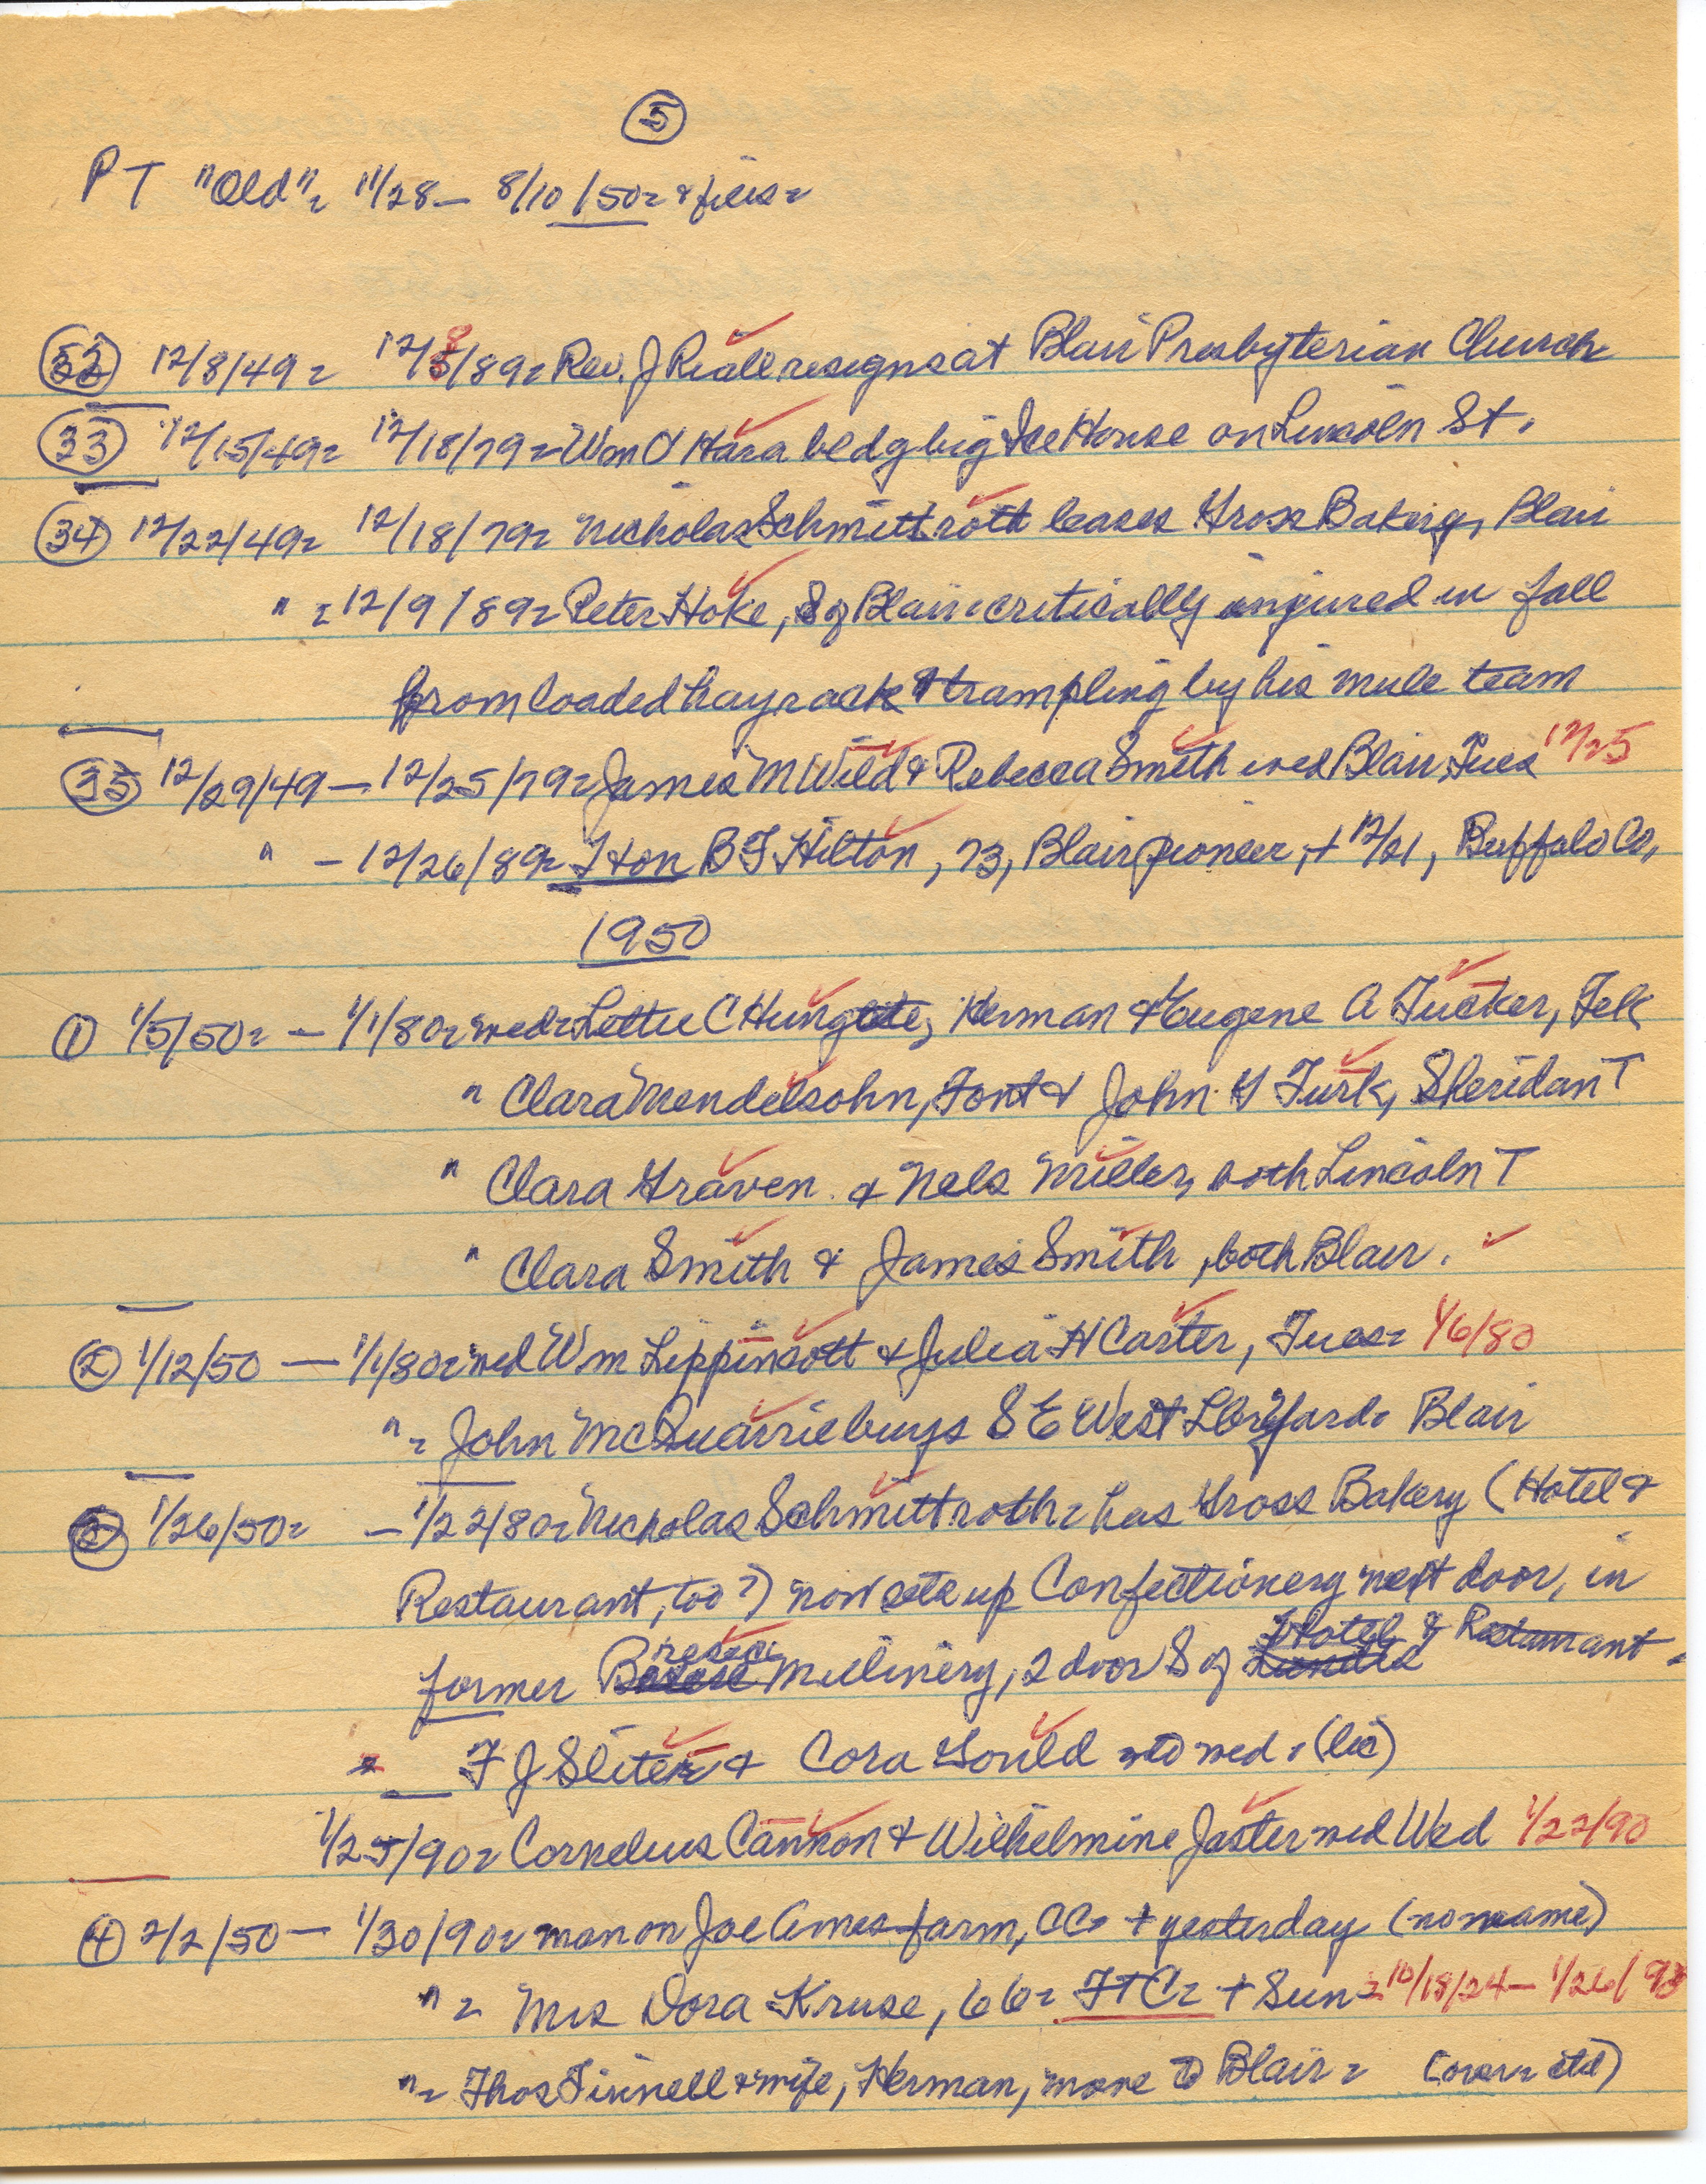 5
PT "Old" 11/28 - 8/10/50 &
32 12/8/49 12/8/89 Rev. J Riall resigns at Blair Presbyterian Church
33 12/15/49 12/18/79 Wm O'Hara bldg big Ice House on Lincoln St.
34 12/22/49 12/18/79 Nicholas Schmittroth leases Gross Bakery, Blair
" 12/9/89 Peter Hoke, S of Blair critically injured in fall
from loaded hayrack & trampling by his mule team
35 12/29/49 - 12/25/79 James M Wild & Rebecca Smith wed Blair, Tues 12/25
" - 12/26/89 Hon B F Hilton, 73, Blair pioneer, + 12/21, Buffalo Co,
1950
1 1/5/50 - 1/1/80 wed Lettie C Hungate, Herman & Eugene A Tucker, Tek
" Clara Mendelsohn, Font & John Y Turk, Sheridan T
" Clara Graven & Nels Miller, both Lincoln T
" Clara Smith & James Smith, both Blair.
2 1/12/50 - 1/1/80 wed Wm Lippincott & Julia H Carter, Tues 1/6/80
" John McQuarrie buys S E West Lbr Yard Blair
3 1/26/50 - 1/22/80 Nicholas Schmittroth has Gross Bakery (Hotel &
Restaurant, too?) now sets up Confectionery next door, in
former Millinery, 2 door S of Hotel & Restaurant
" F J Sliter & Cora Gould to wed (lic)
1/25/90 Cornelius Cannon & Wilhelmine Jaster wed Wed 1/22/90
4 2/2/50 - 1/30/90 man on Joe Ames farm, CC + yesterday (no name)
" Mrs Dora Kruse, 66 FtC + Sun 10/18/24 - 1/26/90
" Thos Finnell & wife, Herman, move to Blair (over ctd)